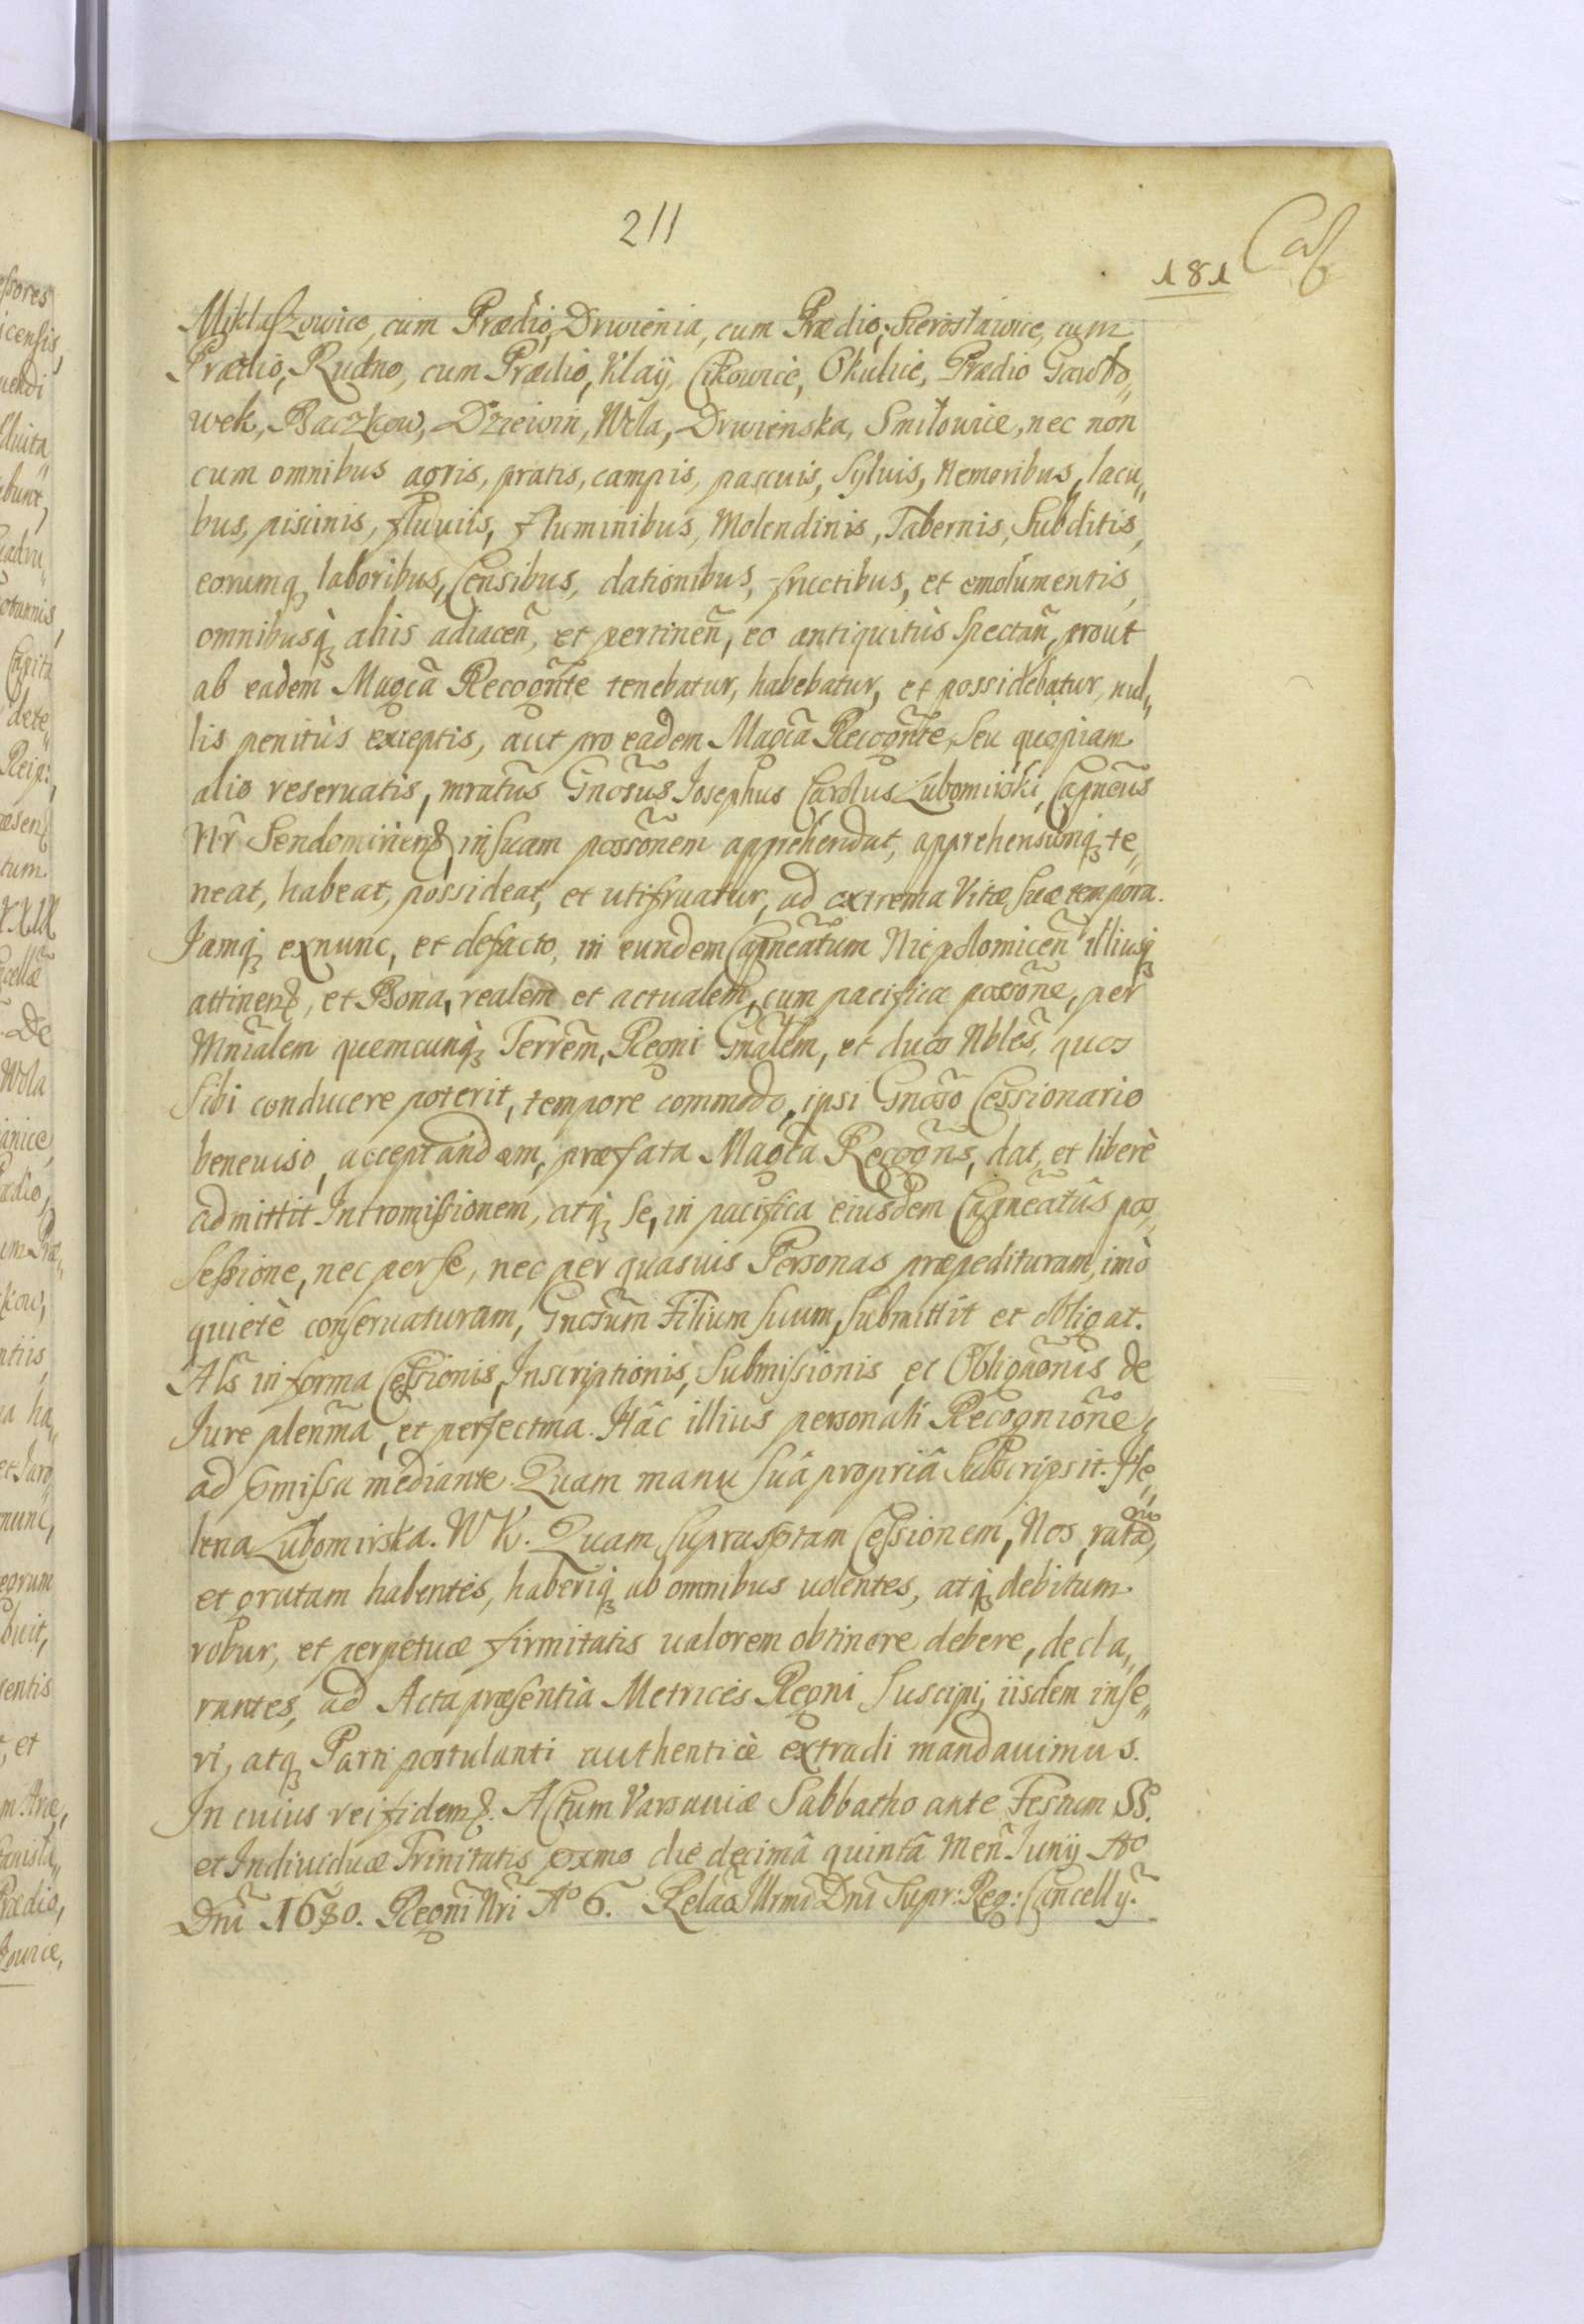 211
181
Miklaszowice, cum Prædio, Drwienia, cum Prædio, Sierosławice, cum
Prædio, Rudno, cum Prædio, Kłaÿ, Cikowice, Okulice, Prædio Gawło„
wek, Baczkow, Dziewin, Wola, Drwienska, Smiłowice, nec non
cum omnibus agris, pratis, campis, pascuis, Syluis, Nemoribus, lacu„
bus, piscinis, fluuiis, fluminibus, Molendinis, Tabernis, Subditis,
eorumq₃ laboribus, Censibus, dationibus, fructibus, et emolumentis,
omnibusq₃ aliis adiaceñ, et pertineñ, eo antiquitùs Spectañ, prout
ab eadem Magcã Recogñte tenebatur, habebatur, et possidebatur, nul„
lis penitùs exceptis, aut pro eadem Magcã Recogñte, Seu quopiam
alio reseruatis, mratus Gnosus Josephus Carolus Lubomirski, Capneus
Nr Sendomirien₃, in Suam possõnem apprehendat, apprehensumq₃ te„
neat, habeat, possideat, et utifruatur, ad extrema Vitæ Suæ tempora.
Jamq₃ exnunc, et defacto, in eundem Capneatum Niepolomiceñ illiusq₃
attinen₃, et Bona, realem et actualem, cum pacifica possõne, per
Mnialem quemcunq₃ Terrem, Regni Gnalem, et duos Nbles, quos
Sibi conducere poterit, tempore commodo, ipsi Gnoso Cessionario
beneuiso, acceptandam, præfata Magca Recogns, dat, et liberè
admittit Intromissionem, atq₃ Se, in pacifica eiusdem Capneatus pos„
sessione, nec per se, nec per quasuis Personas præpedituram, imò
quietè conseruaturam, Gnosum Filium Suum, Submittit et obligat.
Als in forma Cessionis, Inscriptionis, Submissionis, et Obligaõnis de
Jure plenma, et perfectma. Hâc illius personali Recognione,
ad pmissa mediante. Quam manu Suâ propriâ Subscripsit. He„
lena Lubomirska. WK. Quam Suprasptam Cessionem, Nos, rata,
et gratam habentes, haberiq₃ ab omnibus uolentes, atq₃ debitum
robur, et perpetuæ firmitatis ualorem obtinere debere, decla„
rantes, ad Acta præsentia Metrices Regni Suscipi, iisdem inse„
ri, atq₃ Parti postulanti authenticè extradi mandauimus.
In cuius rei fidem₃. Actum Varsauiæ Sabbatho ante Festum SS.
et Indiuiduæ Trinitatis pxmo die decimâ quintâ Meñ Junij Aº
Dni 1680. Regni Nri Aº 6. Relaõ Illrmi Dni Supr: Reg: Cancellÿ.